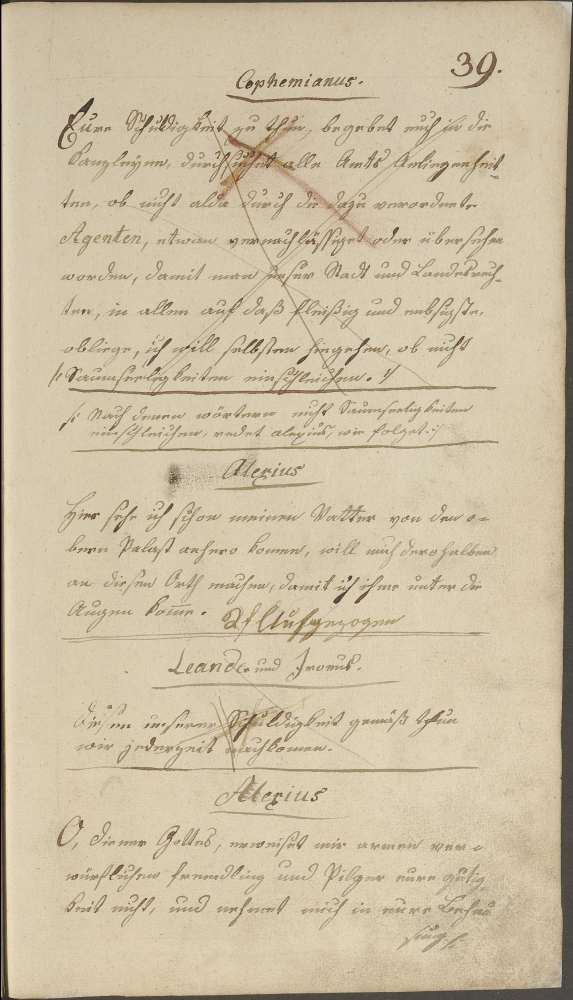 39.
Cophemianus.
Eure Schuldigkeit zu thun, begebet euch in die
Canzleyen, durchsuchet alle Amts Anliegenheit-
ten, ob nicht alda durch die dazu verordnete
Agenten, etwan vernachlässiget oder übersehen
worden, damit man unser Stadt und Landesrech-
ten, in allen auf daß fleißig und embsigste,
obliege, ich will selbsten hingehen, ob nicht
Saumseeligkeiten einschleichen.
Nach denen wörtern nicht Saumseeligkeiten
einschleichen, redet Alexius, wie folget:
Alexius
Hier sehe ich schon meinen Vatter von den o-
bern Palast anhero komen, will mich derohalben
an diesen Orth machen, damit ich ihme unter die
Augen kome. Aufgezogen
Leander und Ironus.
Diesen unserer Schuldigkeit gemäß thun
wir jederzeit nachkomen.
Alexius
O, diener Gottes, erweiset mir armen ver-
würflichen fremdling und Pilger eure gütig-
keit nicht, und nehmet mich in eure Behau
sung